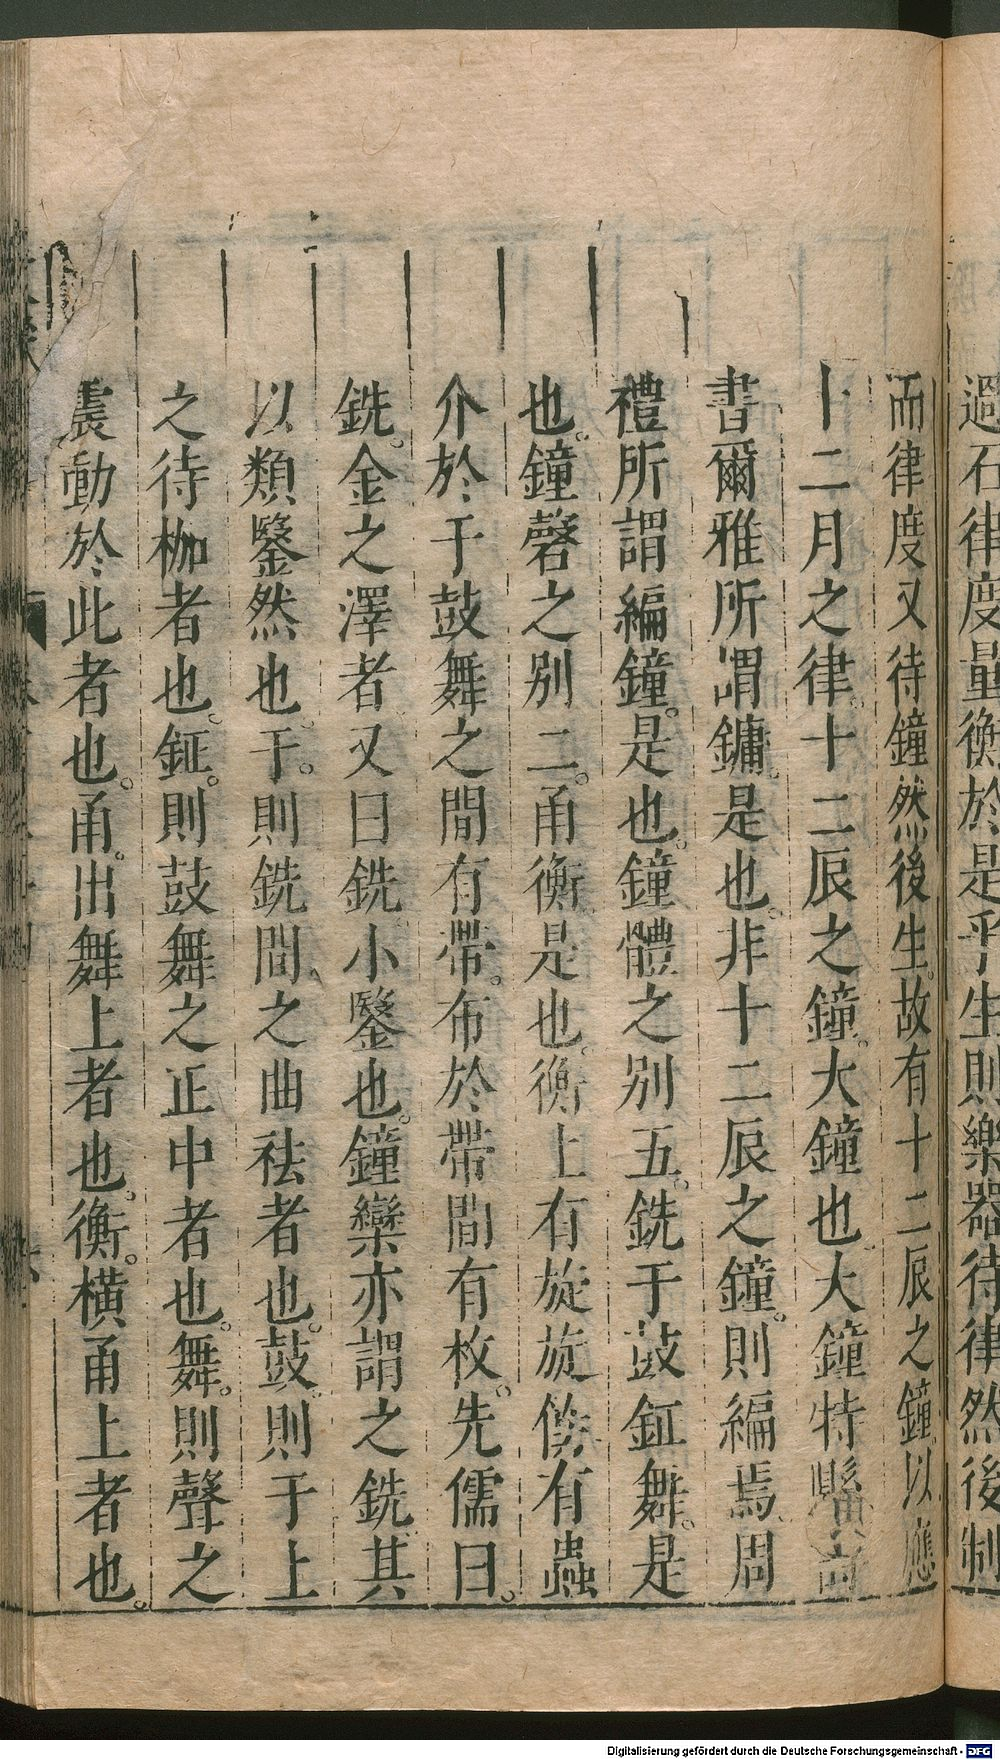 過石律度量衡於是乎生則樂器待律然後制
而律度又待鐘然後生。故有十二辰之鐘以應
十二月之律。十二辰之鐘。大鐘也。大鐘特縣
書爾雅所謂鏞。是也。非十二辰之鐘。則編焉。周
禮所謂編鐘。是也。鐘體之別五。銑于鼓鉦舞。是
也。鐘磬之別二。甬衡是也。衡上有旋旋傍有蟲
介於于鼓舞之間有帶。布於帶間有枚。先儒曰。
銑。金之澤者又曰銑。小鑿也。鐘欒亦謂之銑。其
以類鑿然也。于。則銑間。之曲袪者也。鼓。則于上
之待枹者也。鉦。則鼓舞之正中者也。舞。則聲之
震動於此者也。甬。出舞上者也。衡。橫甬上者也。
Digitalisierung gefördert durch die Deutsche Forschungsgemeinschaft - DFG